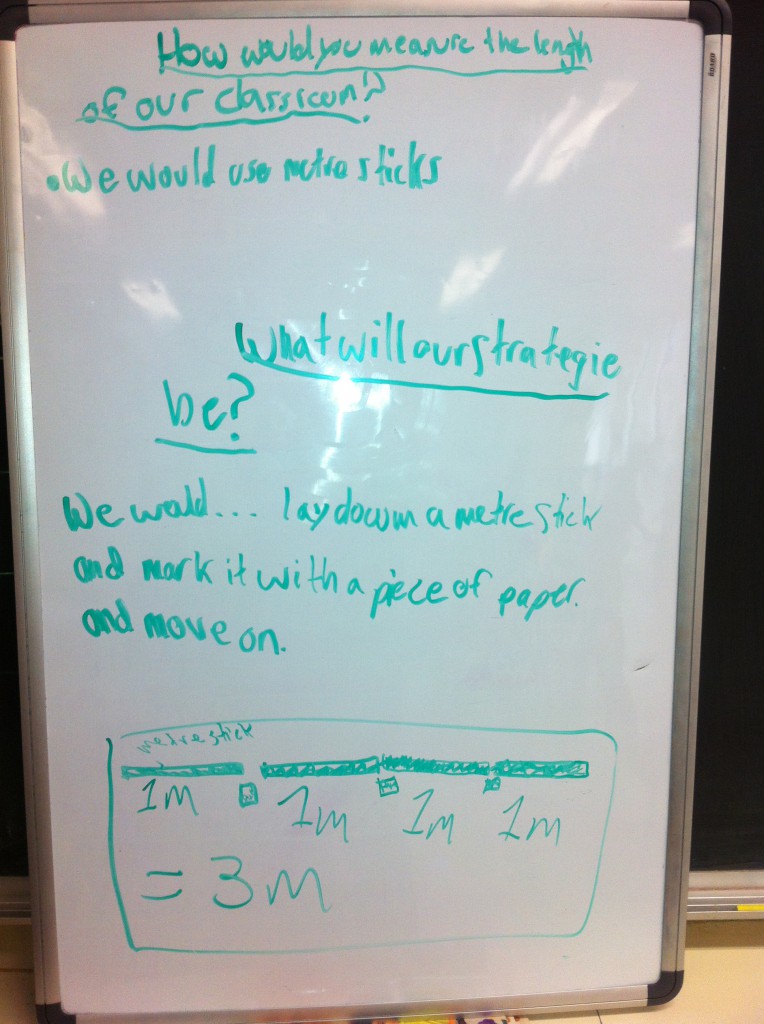 How would you measure the length
of our classroom?
• We would use metre sticks
What will our strategie
be?
We would... lay down a metre stick
and mark it with a piece of paper.
and move on.
metre stick
1m 1m 1m 1m
= 3m